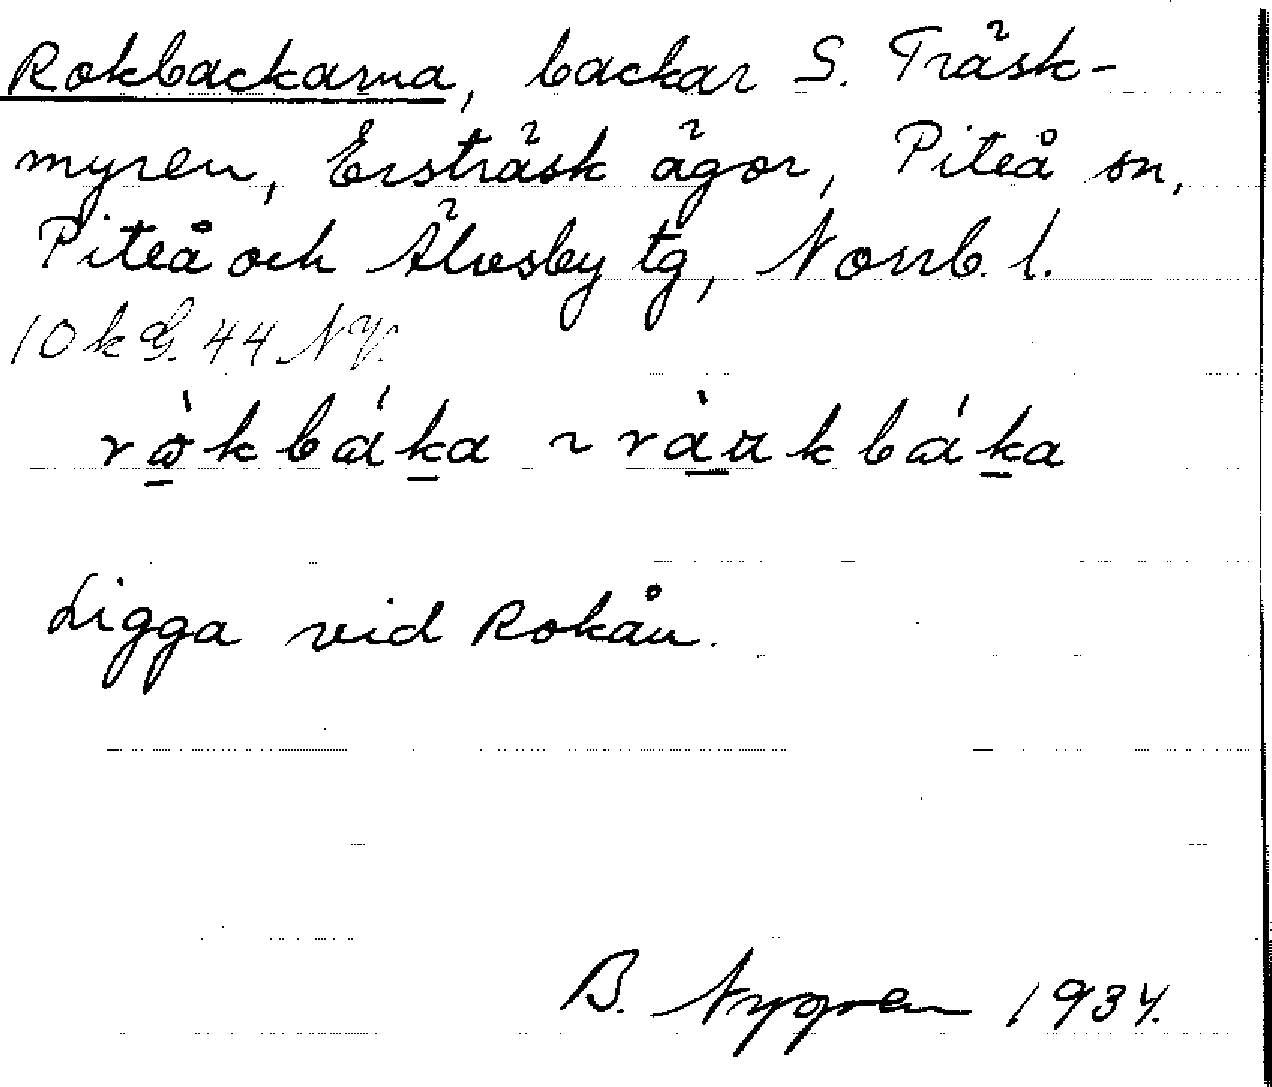 Rokbackarna, backar S. Träsk-
myren, Ersträsk ägor, Piteå sn,
Piteå och Älvsby tg, Norrb. l.
10 k S. 44 NV.
rò̱kbáḵa ~ rà̱u̱kbáḵa
Ligga vid Rokån.
B. Nygren 1934.